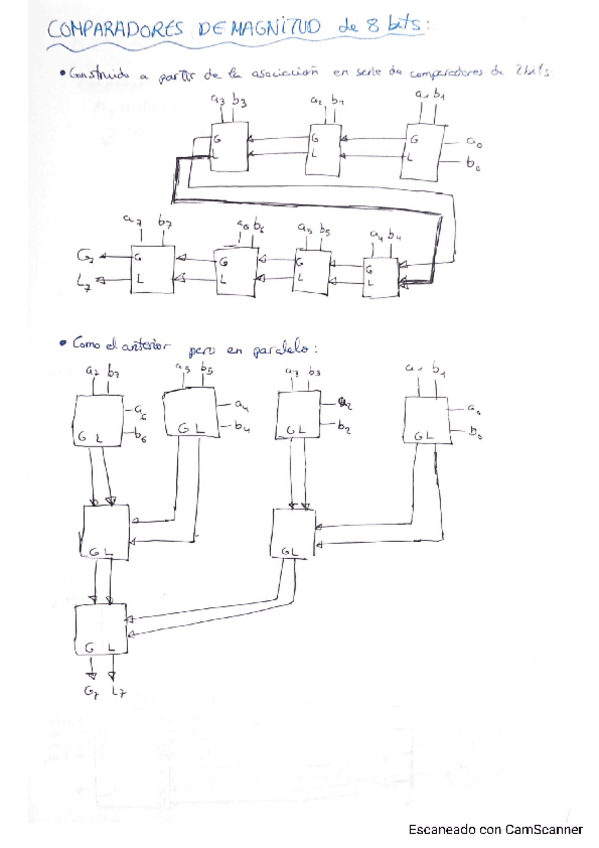 COMPARADORES DE MAGNITUD de 8 bits:
• Construido a partir de la asociación en serie de comparadores de 2 bits
a3 b3 a2 b2 a1 b1
G G G a0
L L L b0
a7 b7 a6 b6 a5 b5 a4 b4
G7 G G G G
L7 L L L L
• Como el anterior pero en paralelo:
a7 b7 a5 b5 a3 b3 a1 b1
a6 a4 a2 a0
b6 b4 b2 b0
G L G L G L G L
G L G L
G L
G7 L7
Escaneado con CamScanner